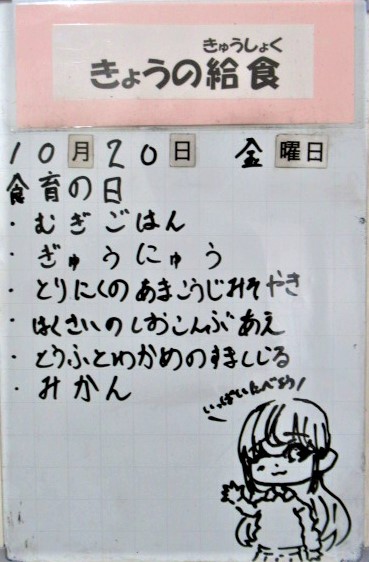 きゅうしょく
きょうの給食
10月20日 金曜日
食育の日
・むぎごはん
・ぎゅうにゅう
・とりにくのあまこうじみそやき
・はくさいのしおこんぶあえ
・とうふとわかめのすましじる
・みかん
いっぱいたべよう!